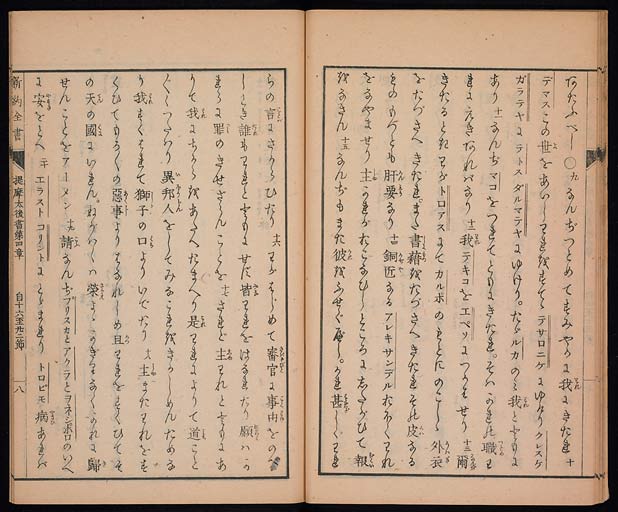 あたふべし〇九なんぢつとめてすみやかに我にきたれ十
デマスこの世をあいしわれをすてゝテサロニケにゆけりクレスケ
ガラテヤにテトスダルマテヤにゆけり。たゞルカのみ我とともに
あり十一なんぢマコをつれてともにきたれ。そはかれは職に
我テキコをエペソにつかはせり十三爾
きたるときわがトロアスにてカルポのもとにのこしゝ外衣
をたづさへきたれ。また書籍をたづさへきたれそは皮なる
ものもつとも肝要なり十四銅匠なるアレキサンデル
をなやませり主かれがおこなひしところにしたがひて報
をなさん十五なんぢもまた彼をふせぐべし。かれ甚しくわれ
らの言にさからひたり十六わがはじめて審官に事由をのべ
しとき誰もわれとともにせず皆われをはなれたり願はか
れらに罪のきせざらんことを十七されど主われとともにあ
りて我にちからをあたへたまへり是われによりて道こと
異邦人をしてみなこれをきかしめんためな
り我すくはれて獅子の口よりいでたり十八主またわれをす
くひてもろ〳〵の惡事よりはなれしめ且われをすくひてそ
の天の國にいれん。ねがはくは榮よゝかぎりなくかれに歸
せんことをアーメン十九請なんぢプリスカとアクラとヲネシポロのいへ
に安をとへ二十エラストコリントにとゞまれりトロピモ病あれば
新約全書
提摩太後書第四章
自十六至廿二節
八